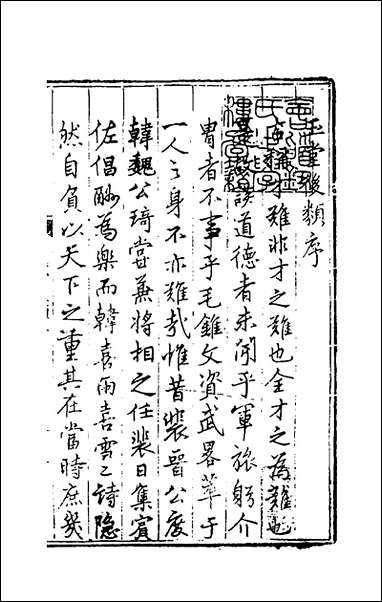 玉堂㩦類序
才難非才之難也全才之為難也
談道德者未閑乎軍旅躬介
胄者不事乎毛錐文資武畧萃于
一人之身不亦難哉惟昔裴晉公度
韓魏公琦當兼將相之任裴日集賓
佐倡酬為樂而韓喜雨喜雪之詩隐
然自負以天下之重其在當時庶幾